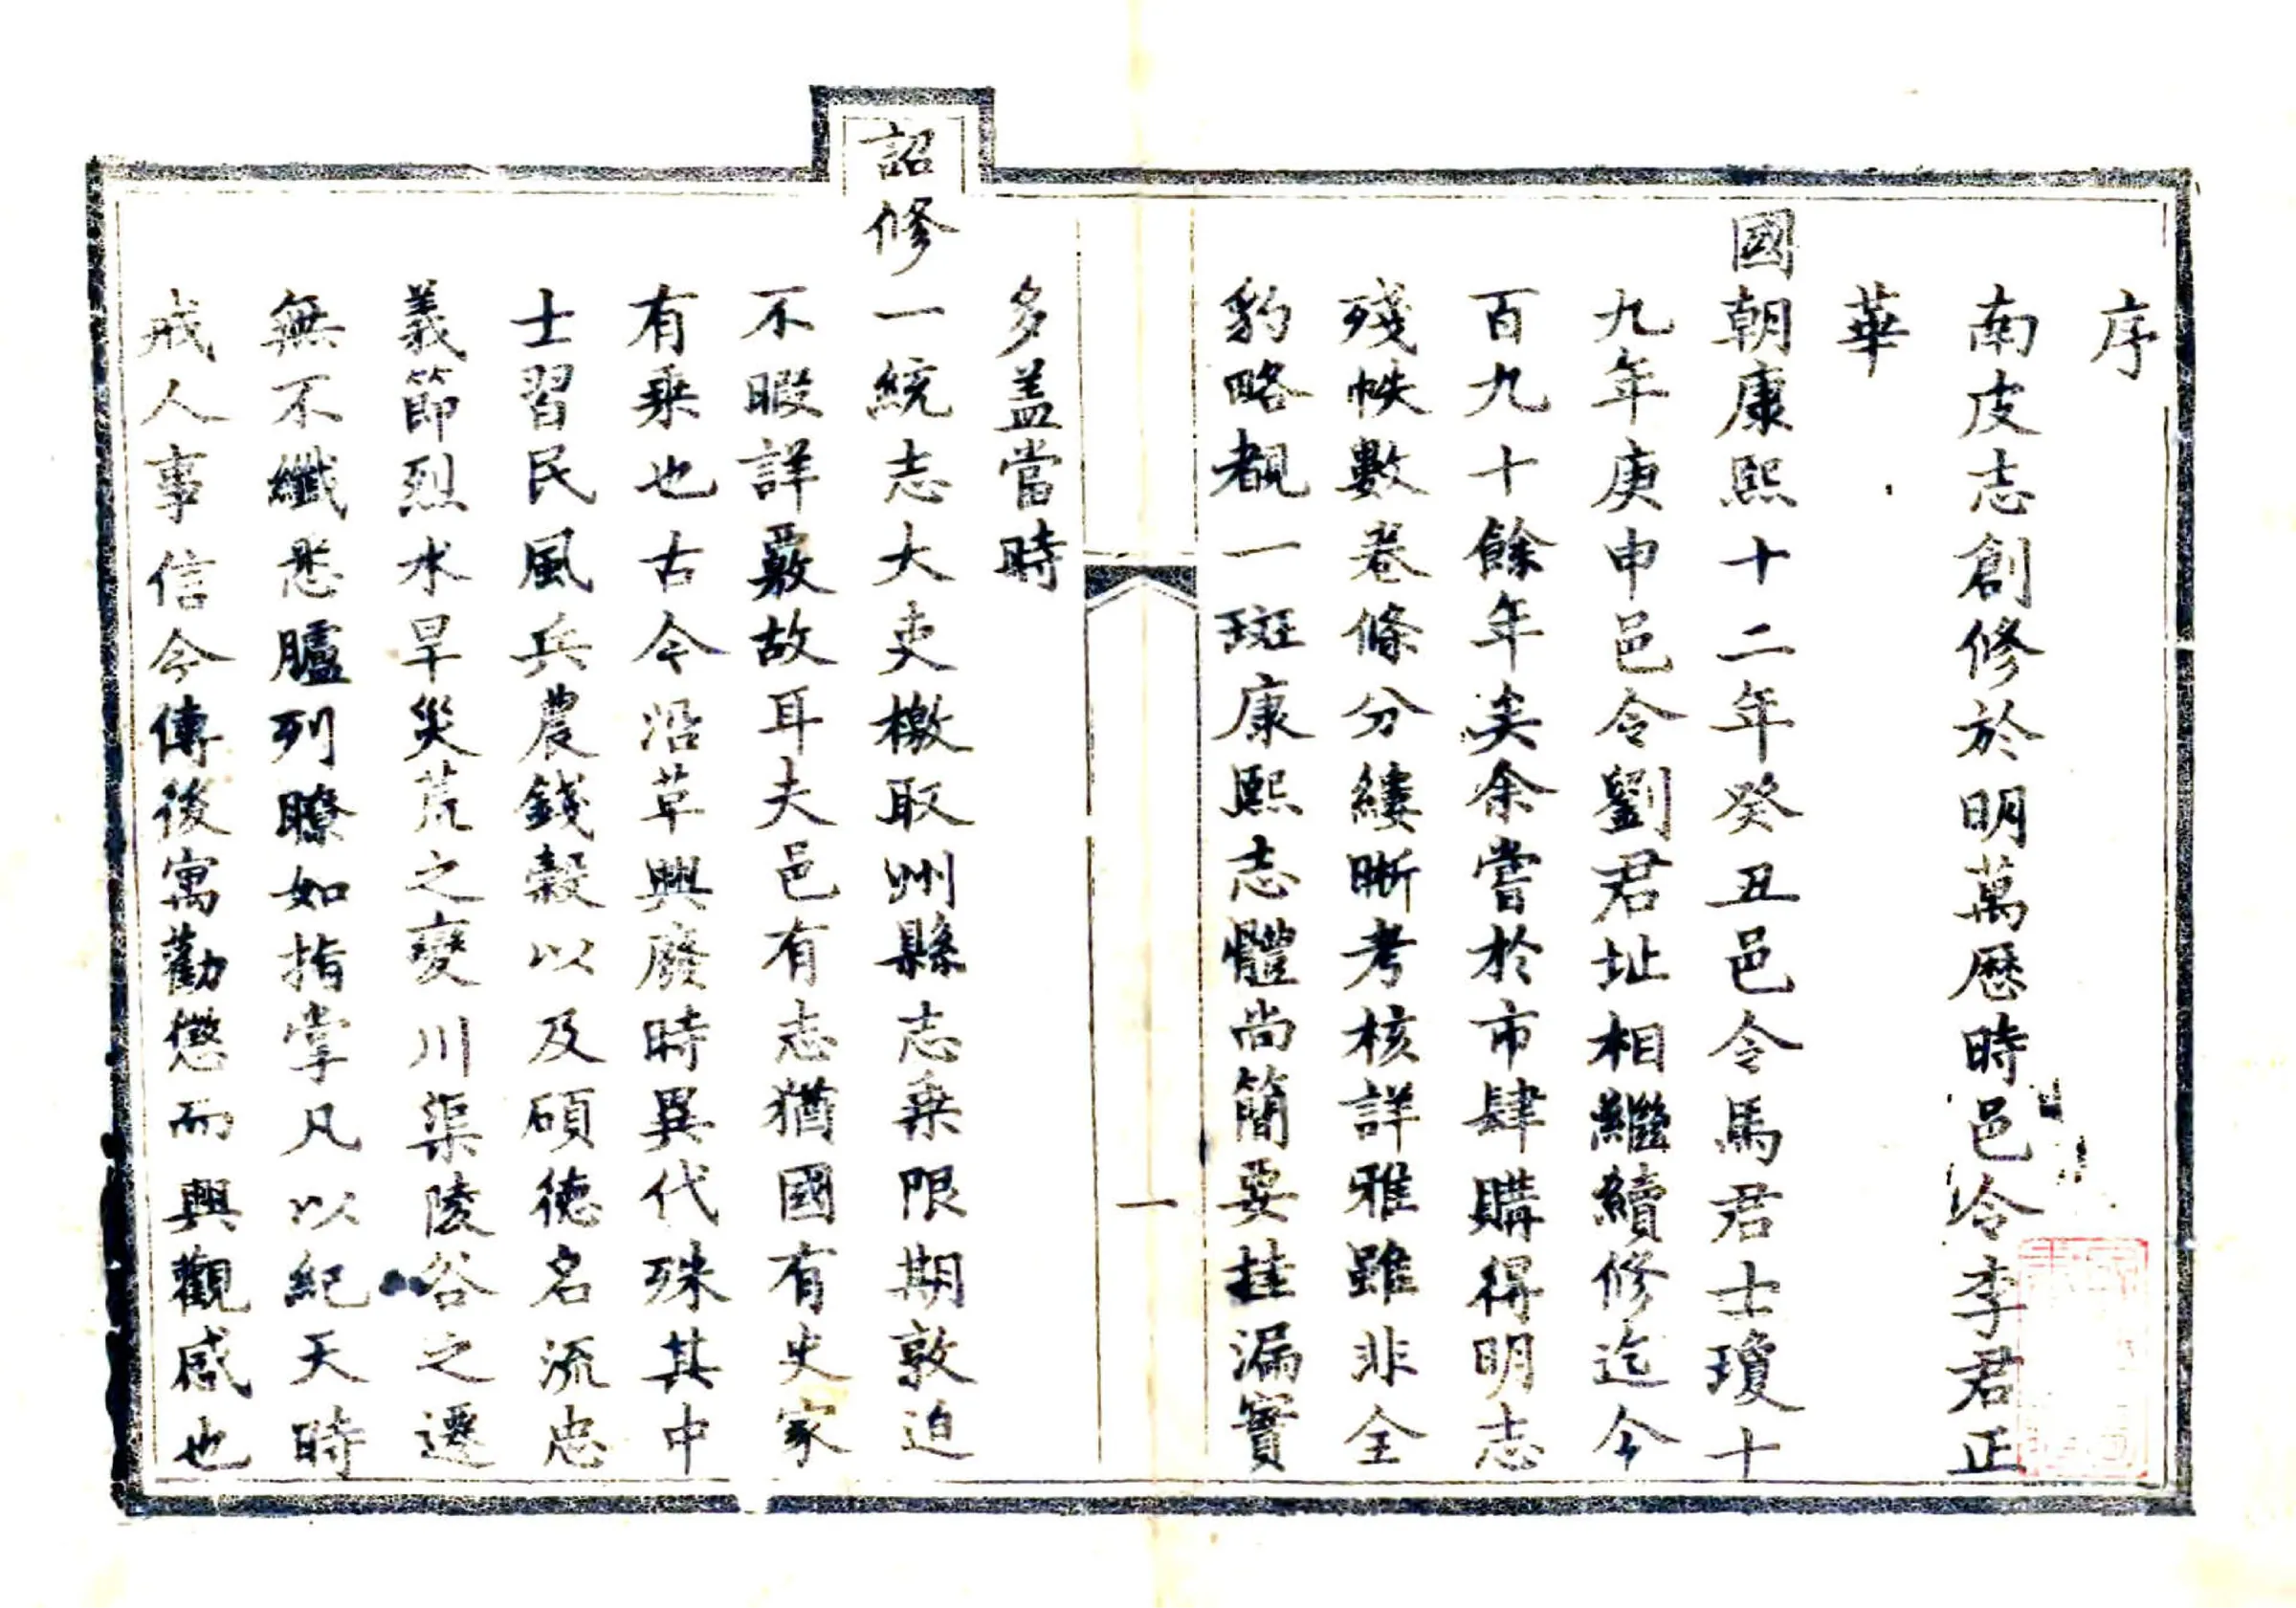 序
南皮志創修於明萬歷時邑令李君正
華
國朝康熙十二年癸丑邑令馬君士瓊十
九年庚申邑令劉君址相繼續修迄今
百九十餘年矣余嘗於市肆購得明志
殘帙數卷條分縷晰考核詳雅雖非全
豹略覩一斑康熙志體尚簡要挂漏實
一
多盖當時
詔修一統志大吏檄取州縣志乗限期敦迫
不暇詳覈故耳夫邑有志猶國有史家
有乗也古今沿革興廢時異代殊其中
士習民風兵農錢糓以及碩德名流忠
義節烈水旱災荒之變川渠陵谷之遷
無不纖悉臚列瞭如指掌凡以紀天時
戒人事信今傳後寓勸懲而興觀感也